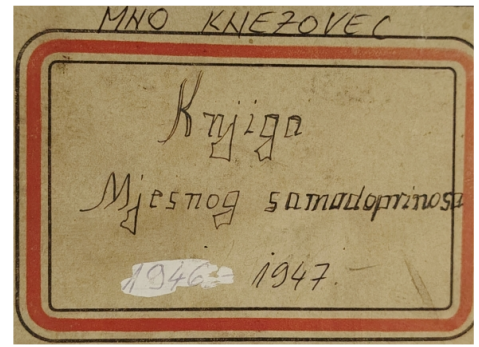 MNO KNEZOVEC
Knjiga
Mjesnog samodoprinosa
1946 - 1947.-